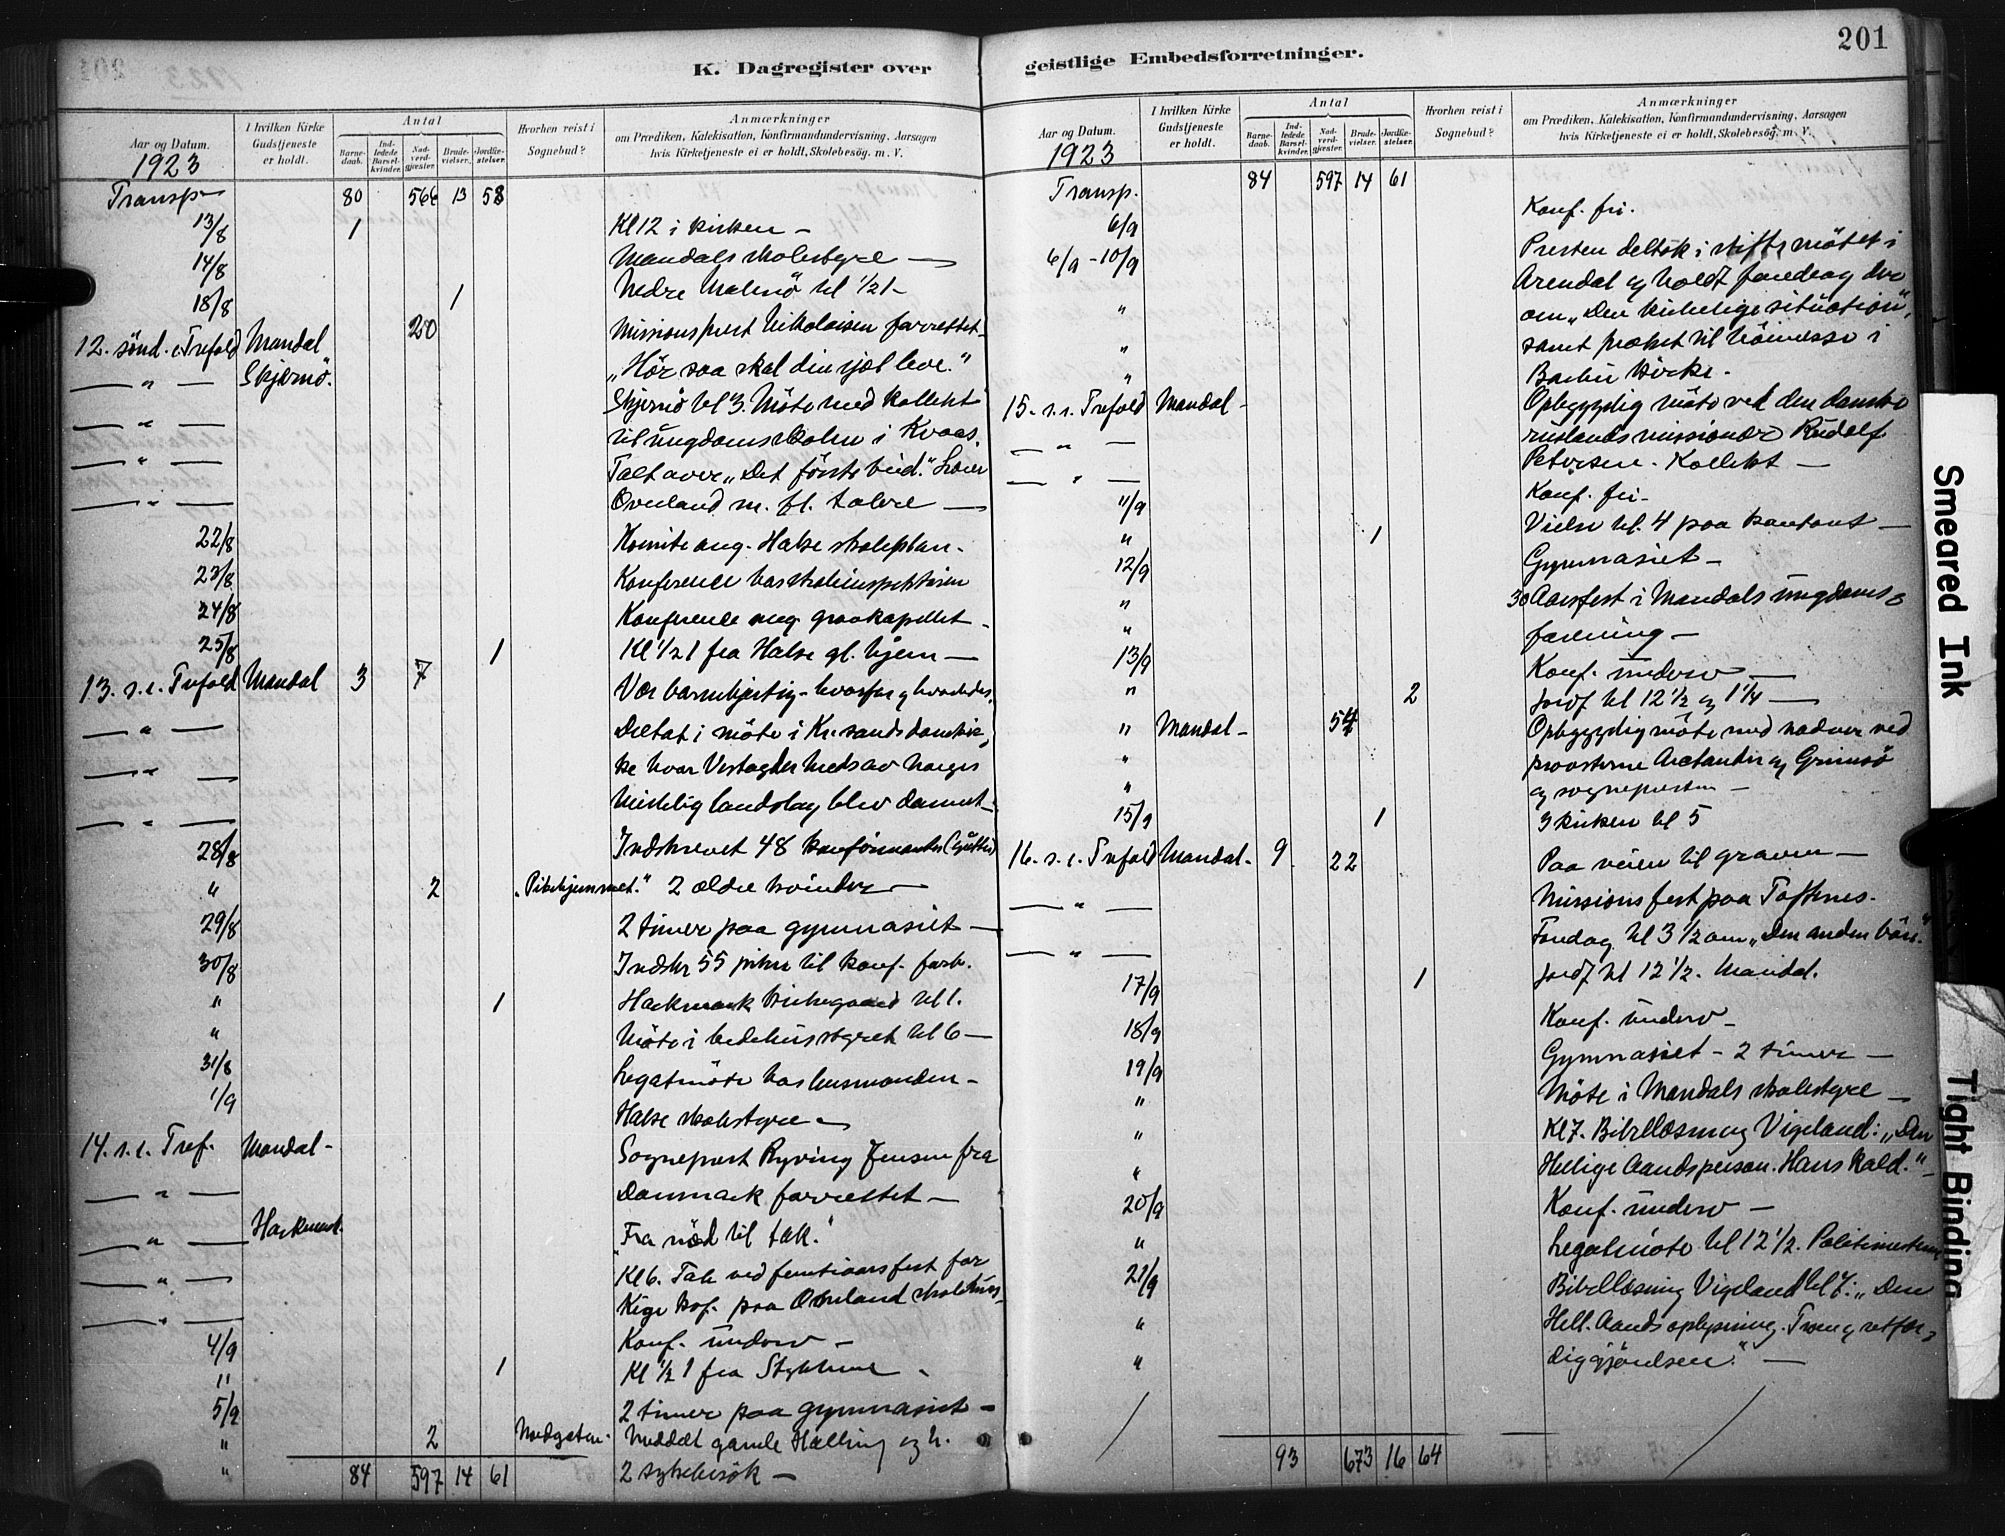 201
K. Dagregister over geistlige Embedsforretninger.
Aar og Datum.
1923
I hvilken Kirke Gudstjeneste er holdt.
Antal
Barnedaab.
Indledede Barselkvinder.
Nadverdgjæster.
Brudevielser.
Jordfæstelser.
Hvorhen reist i Sognebud?
Anmærkninger
om Prædiken, Katekisation, Konfirmandundervisning, Aarsagen
hvis Kirketjeneste ei er holdt, Skolebesög. m. V.
Transp 80 566 13 58
13/8 1 Kl 12 i kirken –
14/8 Mandals skolestyre –
18/8 1 Nedre Malmö kl 1/2 1 –
12. sönd. e. Trefold Mandal 20 Missionsprest Nikolaisen forrettet –
— " — Skjernö. „Hör saa skal din sjæl leve."
— " — Skjernö kl 3. Möte med kollekt
— " — til ungdomsskolen i Kvaas.
— " — Talt over „Det förste bud." Lærer
Överland m. fl. talere —
22/8 Komite ang. Halse skoleplan.
23/8 Konference hos skoleinspektören
24/8 Konference ang. gravkapellet –
25/8 1 Kl 1/2 1 fra Halse gl. hjem —
13. s. e. Trefold Mandal 3 7 Vær barmhjertig – hvorfor og hvorledes.
— " — Deltat i möte i Kr.sands domkir-
— " — ke hvor Vestagder krets av Norges
— " — kirkelig landslag blev dannet –
28/8 Indskrevet 48 konfirmander (gutter)
" 2 „Pikehjemmet." 2 ældre kvinder —
29/8 2 timer paa gymnasiet —
30/8 Indskr 55 piker til konf. forb.
" 1 Harkmark kirkegaard kl 1.
" Möte i bedehusstyret kl 6 —
31/8 Legatmöte hos lensmanden –
1/9 Halse skolestyre –
14. s. e. Tref. Mandal – Sogneprest Ryving Jensen fra
— " — Danmark forrettet —
— " — Harkmark. „Fra nöd til tak."
— " — Kl 6. Tale ved femtiaarsfest for
— " — Kige kvf. paa Omland skolehus –
4/9 Konf. underv –
" 1 Kl 1/2 1 fra
5/9 2 timer paa gymnasiet –
" 2 Nordgaten. Meddelt gamle Hælling og h.
" 2 sykebesök –
84 597 14 61
Aar og Datum.
1923
I hvilken Kirke Gudstjeneste er holdt.
Antal
Barnedaab.
Indledede Barselkvinder.
Nadverdgjæster.
Brudevielser.
Jordfæstelser.
Hvorhen reist i Sognebud?
Anmærkninger
om Prædiken, Katekisation, Konfirmandundervisning, Aarsagen
hvis Kirketjeneste ei er holdt, Skolebesög. m. V.
Transp. 84 597 14 61
6/9 Konf. fri.
6/9 – 10/9 Presten deltok i stiftsmötet i
Arendal og holdt foredrag der
" om „Den kirkelige situation",
" samt præket til höimesse i
" Barbu kirke.
15. s. e. Trefold Mandal – Opbyggelig möte ved den danske
— " — ruslandsmissionær Rudolf
— " — Petersen. Kollekt —
11/9 Konf. fri –
" 1 Vielse kl. 4 paa kontoret —
12/9 Gymnasiet –
" 30 Aarsfest i Mandals ungdoms-
" forening –
13/9 Konf. underv —
" 2 Jordf kl 12 1/2 og 1 1/4 —
" Mandal – 54 Opbyggelig möte med nadver ved
" provsterne Arctander og Grimsö
" og sognepresten –
15/9 1 I kirken kl 5
16. s. e. Trefold Mandal – 9 22 Paa veien til graven –
— " — Missionsfest paa Toftenes.
— " — Foredrag kl 3 1/2 om „Den anden bön."
17/9 1 Jordf kl 12 1/2. Mandal.
18/9 Konf. underv –
19/9 Gymnasiet – 2 timer –
" Möte i Mandals skolestyre –
" Kl 7. Bibellæsning Vigeland: „Den
" Hellige Aands person. Hans kald." –
20/9 Konf. underv –
" Legatmöte kl 12 1/2. Politimesteren
21/9 Bibellæsning Vigeland kl 7: „Den
" Hell. Aands oplysning. Troen og retfær-
" diggjörelsen." —
93 673 16 64
Smeared Ink
Tight Binding